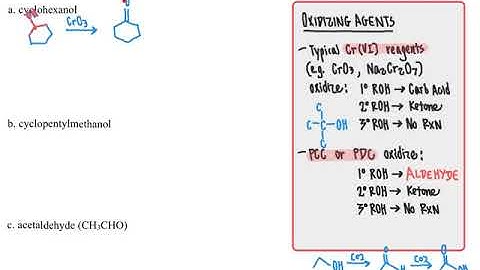 a. cyclohexanol
OH
CrO₃
O
b. cyclopentylmethanol
c. acetaldehyde (CH₃CHO)
OXIDIZING AGENTS
- Typical Cr(VI) reagents
(e.g. CrO₃, Na₂Cr₂O₇)
oxidize: 1° ROH → Carb Acid
2° ROH → Ketone
3° ROH → No Rxn
C
C-C-OH
C
- PCC or PDC oxidize:
1° ROH → ALDEHYDE
2° ROH → Ketone
3° ROH → No Rxn
OH
H